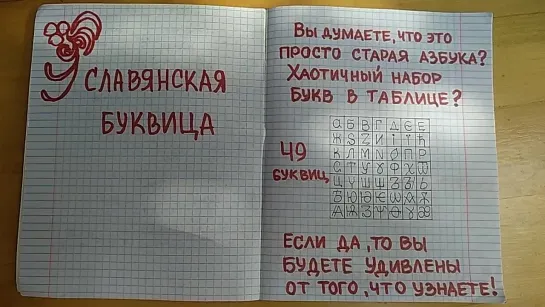 СЛАВЯНСКАЯ
БУКВИЦА
Вы думаете, что это
просто старая азбука?
Хаотичный набор
букв в таблице?
49
буквиц
Если да, то вы
будете удивлены
от того, что узнаете!